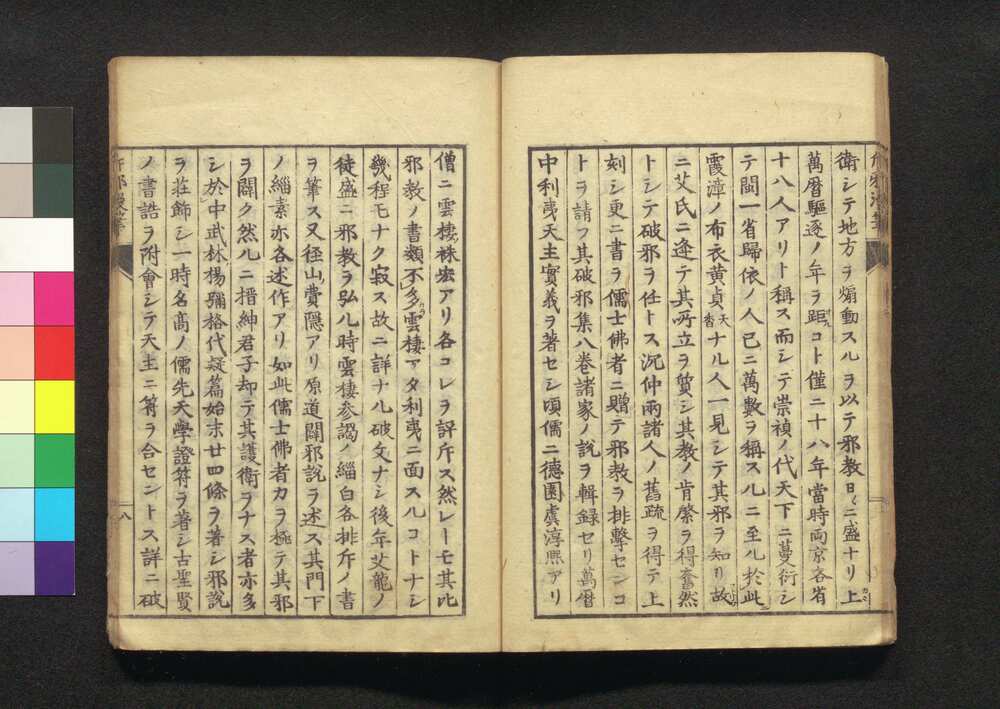 衛シテ地方ヲ煽動スルヲ以テ邪教日々ニ盛ナリ上
萬曆驅逐ノ年ヲ距コト僅ニ十八年當時両京各省
十八人アリト稱ス而シテ崇禎ノ代天下ニ蔓衍シ
テ閩一省歸依ノ人已ニ萬數ヲ稱スルニ至ル於此
霞漳ノ布衣黄貞天香ナル人一見シテ其邪ヲ知リ故
ニ艾氏ニ逢テ其所立ヲ質シ其教ノ肯綮ヲ得奮然
トシテ破邪ヲ任トス沉仲兩諸人ノ舊疏ヲ得テ上
刻シ更ニ書ヲ儒士佛者ニ贈テ邪教ヲ排擊センコ
トヲ請フ其破邪集八巻諸家ノ説ヲ輯録セリ萬曆
中利夷天主實義ヲ著セシ頃儒ニ德園虞淳熈アリ
僧ニ雲棲袾宏アリ各コレヲ評斥ス然レトモ其比
邪教ノ書類不多雲棲マタ利夷ニ面スルコトナシ
幾程モナク寂ス故ニ詳ナル破文ナシ後年艾龍ノ
徒盛ニ邪教ヲ弘ル時雲棲参謁ノ緇白各排斥ノ書
ヲ筆ス又径山費隠アリ原道闢邪説ヲ述ス其門下
ノ緇素亦各述作アリ如此儒士佛者力ヲ極テ其邪
ヲ闢ク然ルニ搢紳君子却テ其護衛ヲナス者亦多
シ於中武林楊彌格代疑篇始末廿四條ヲ著シ邪説
ヲ莊飾シ一時名高ノ儒先天學證符ヲ著シ古聖賢
ノ書誥ヲ附會シテ天主ニ符ヲ合セントス詳ニ破
八